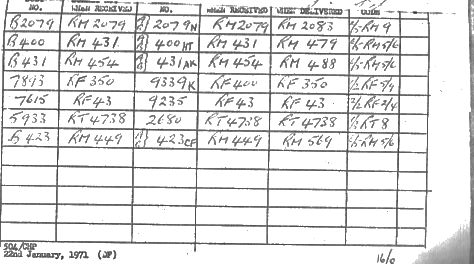 NO. WHEN RECEIVED NO. WHEN RECEIVED WHEN DELIVERED CODE
B2079 RM 2079 2079N RM2079 RM 2083 RM 9
B400 RM 431 400HT RM 431 RM 479 RM5/6
B431 RM 454 431AK RM 454 RM 488 RM5/6
7893 RF 350 9339K RF400 RF 350 2/2 RF 5/4
7615 RF43 9235 RF43 RF 43 2/2 RF2/4
5933 RT4738 2680 RT4738 RT4738 RT8
B423 RM 449 423CF RM449 RM 569 RM5/6
504/CHP
22nd January, 1971 (JP) 16/0